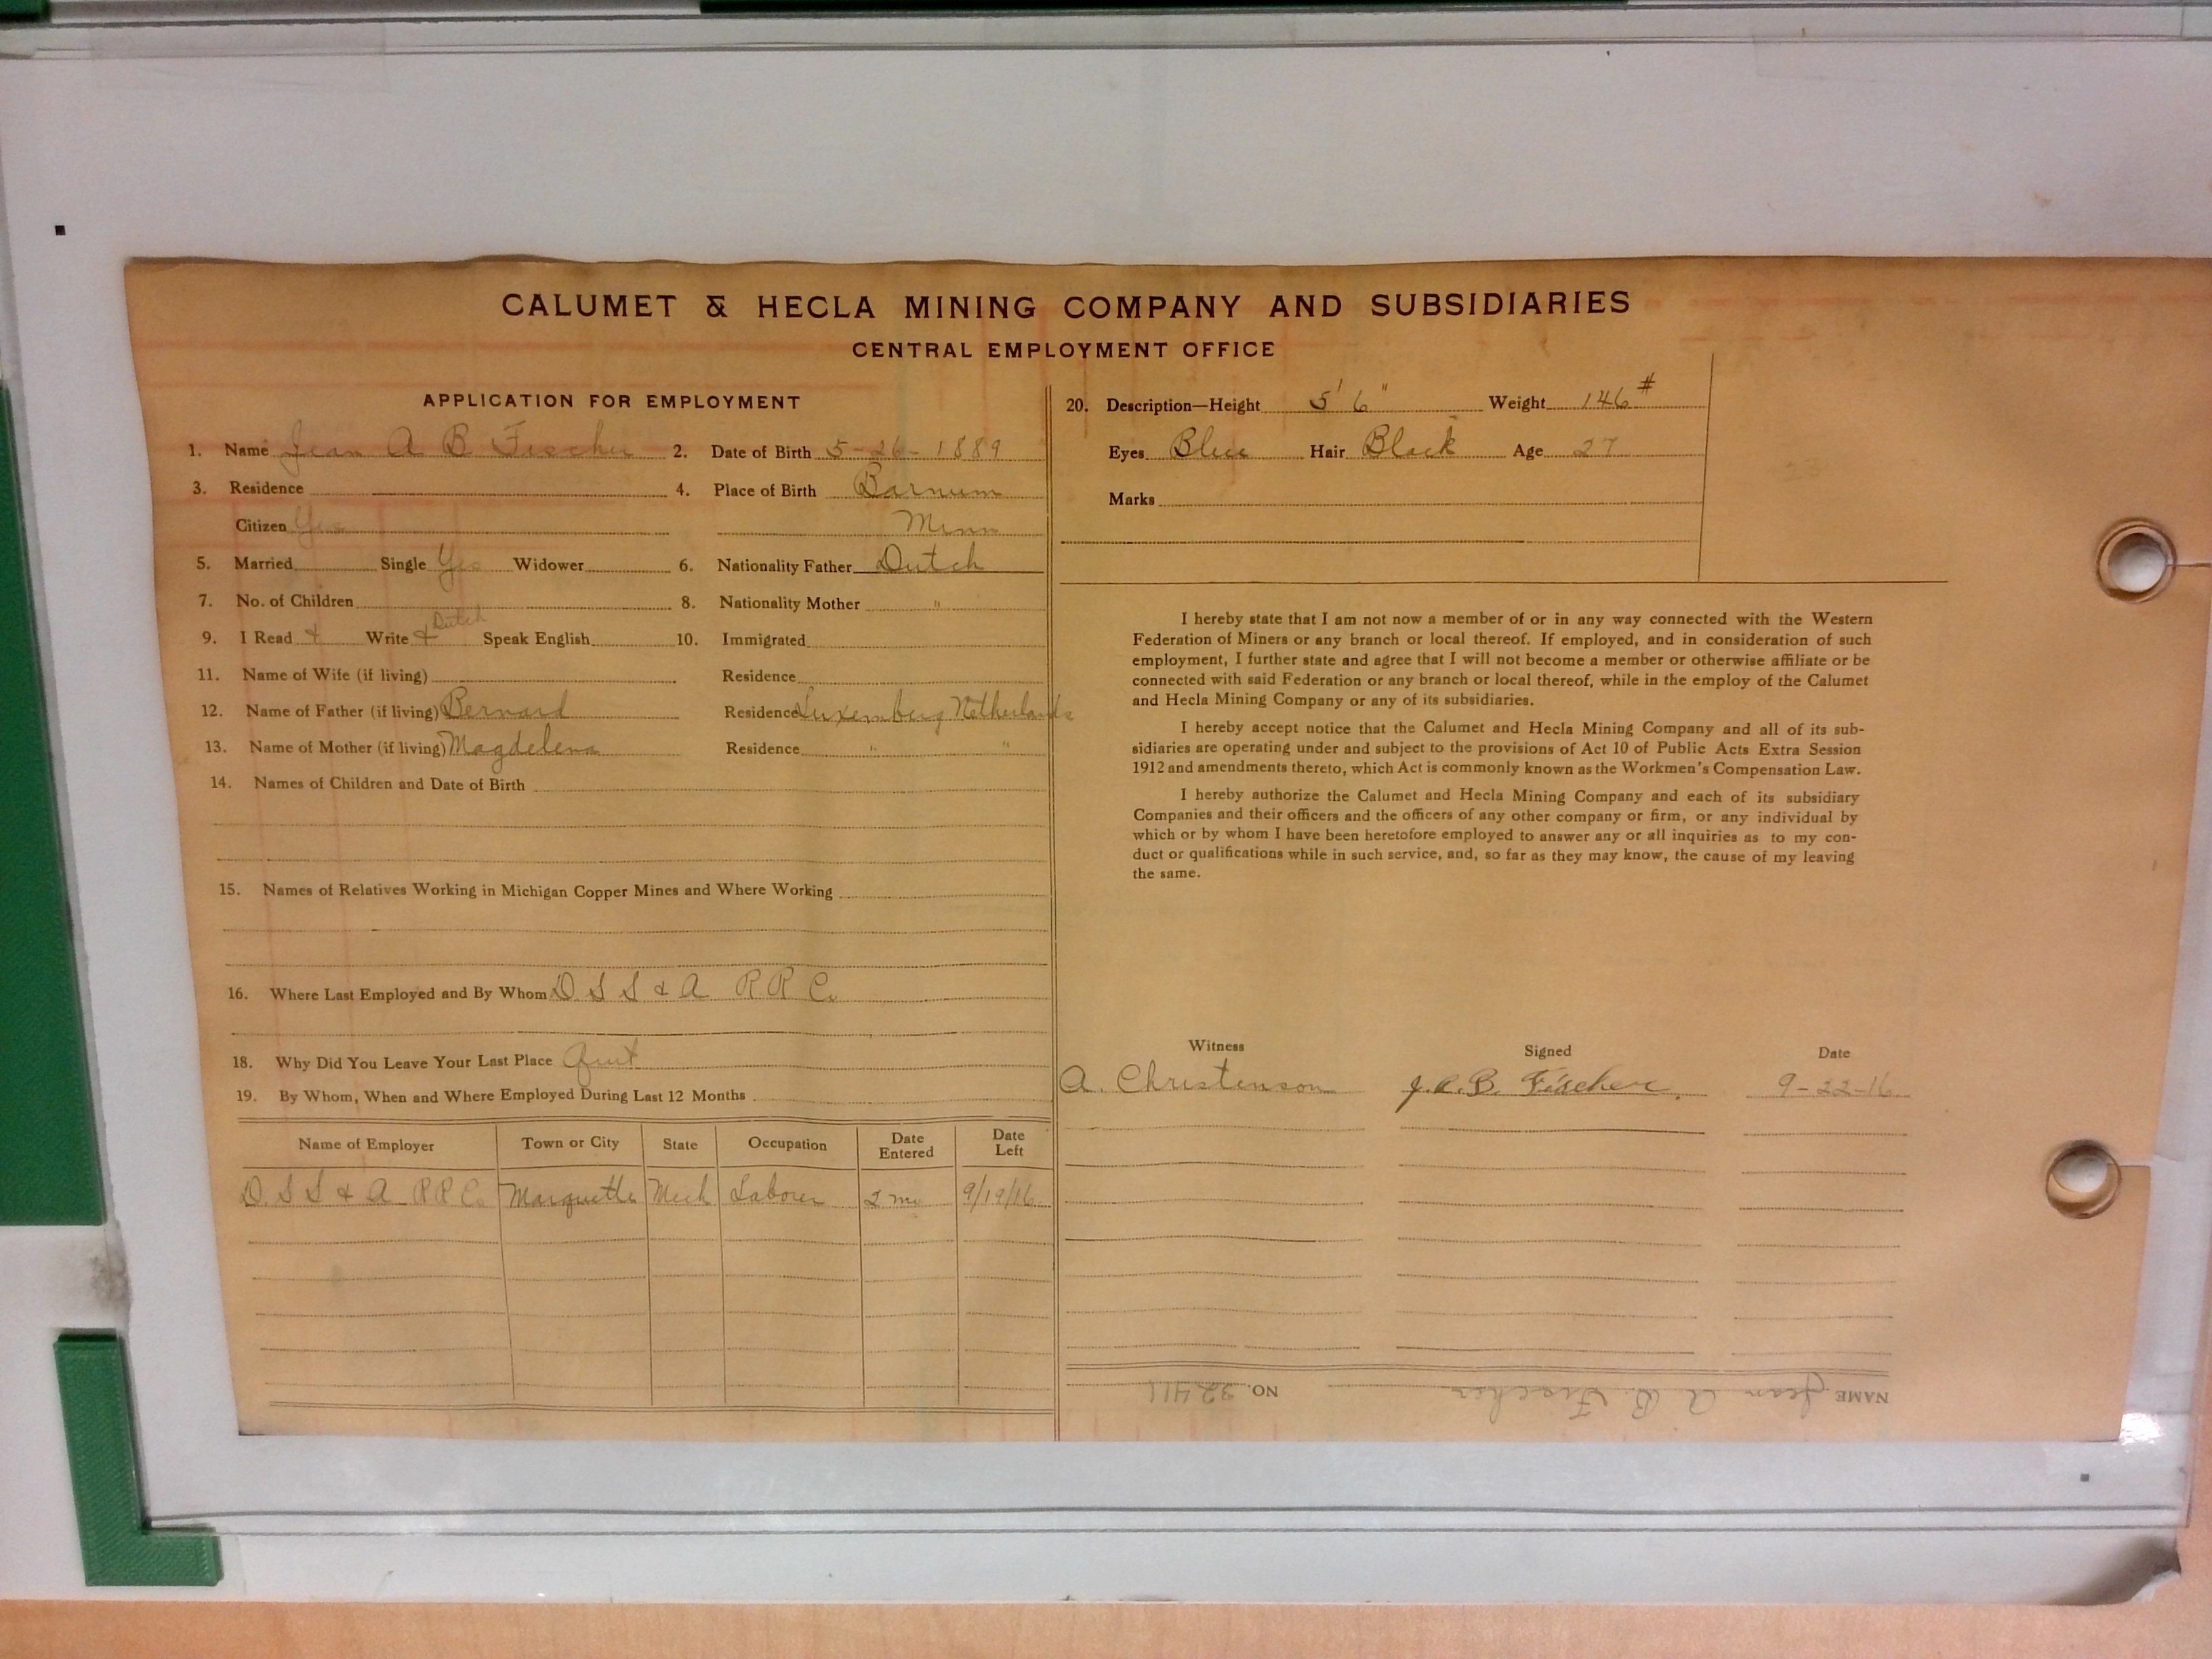 CALUMET & HECLA MINING COMPANY AND SUBSIDIARIES
CENTRAL EMPLOYMENT OFFICE
APPLICATION FOR EMPLOYMENT
1. Name Jean A B Fischer 2. Date of Birth 5-26-1889
3. Residence 4. Place of Birth Barnum
Citizen Yes Minn
5. Married Single Yes Widower 6. Nationality Father Dutch
7. No. of Children 8. Nationality Mother "
9. I Read & Write & Dutch Speak English 10. Immigrated
11. Name of Wife (if living) Residence
12. Name of Father (if living) Bernard Residence Luxemberg Netherlands
13. Name of Mother (if living) Magdelena Residence " "
14. Names of Children and Date of Birth
15. Names of Relatives Working in Michigan Copper Mines and Where Working
16. Where Last Employed and By Whom D. S S & A R R Co
18. Why Did You Leave Your Last Place Quit
19. By Whom, When and Where Employed During Last 12 Months
Name of Employer Town or City State Occupation Date Entered Date Left
D. S S & A R R Co Marquette Mich Laborer 2 mo 9/19/16
20. Description—Height 5' 6" Weight 146 #
Eyes Blue Hair Black Age 27
Marks
I hereby state that I am not now a member of or in any way connected with the Western
Federation of Miners or any branch or local thereof. If employed, and in consideration of such
employment, I further state and agree that I will not become a member or otherwise affiliate or be
connected with said Federation or any branch or local thereof, while in the employ of the Calumet
and Hecla Mining Company or any of its subsidiaries.
I hereby accept notice that the Calumet and Hecla Mining Company and all of its sub-
sidiaries are operating under and subject to the provisions of Act 10 of Public Acts Extra Session
1912 and amendments thereto, which Act is commonly known as the Workmen's Compensation Law.
I hereby authorize the Calumet and Hecla Mining Company and each of its subsidiary
Companies and their officers and the officers of any other company or firm, or any individual by
which or by whom I have been heretofore employed to answer any or all inquiries as to my con-
duct or qualifications while in such service, and, so far as they may know, the cause of my leaving
the same.
Witness Signed Date
A. Christenson J. A. B. Fischer. 9-22-16
NAME Jean A B. Fischer NO. 32411